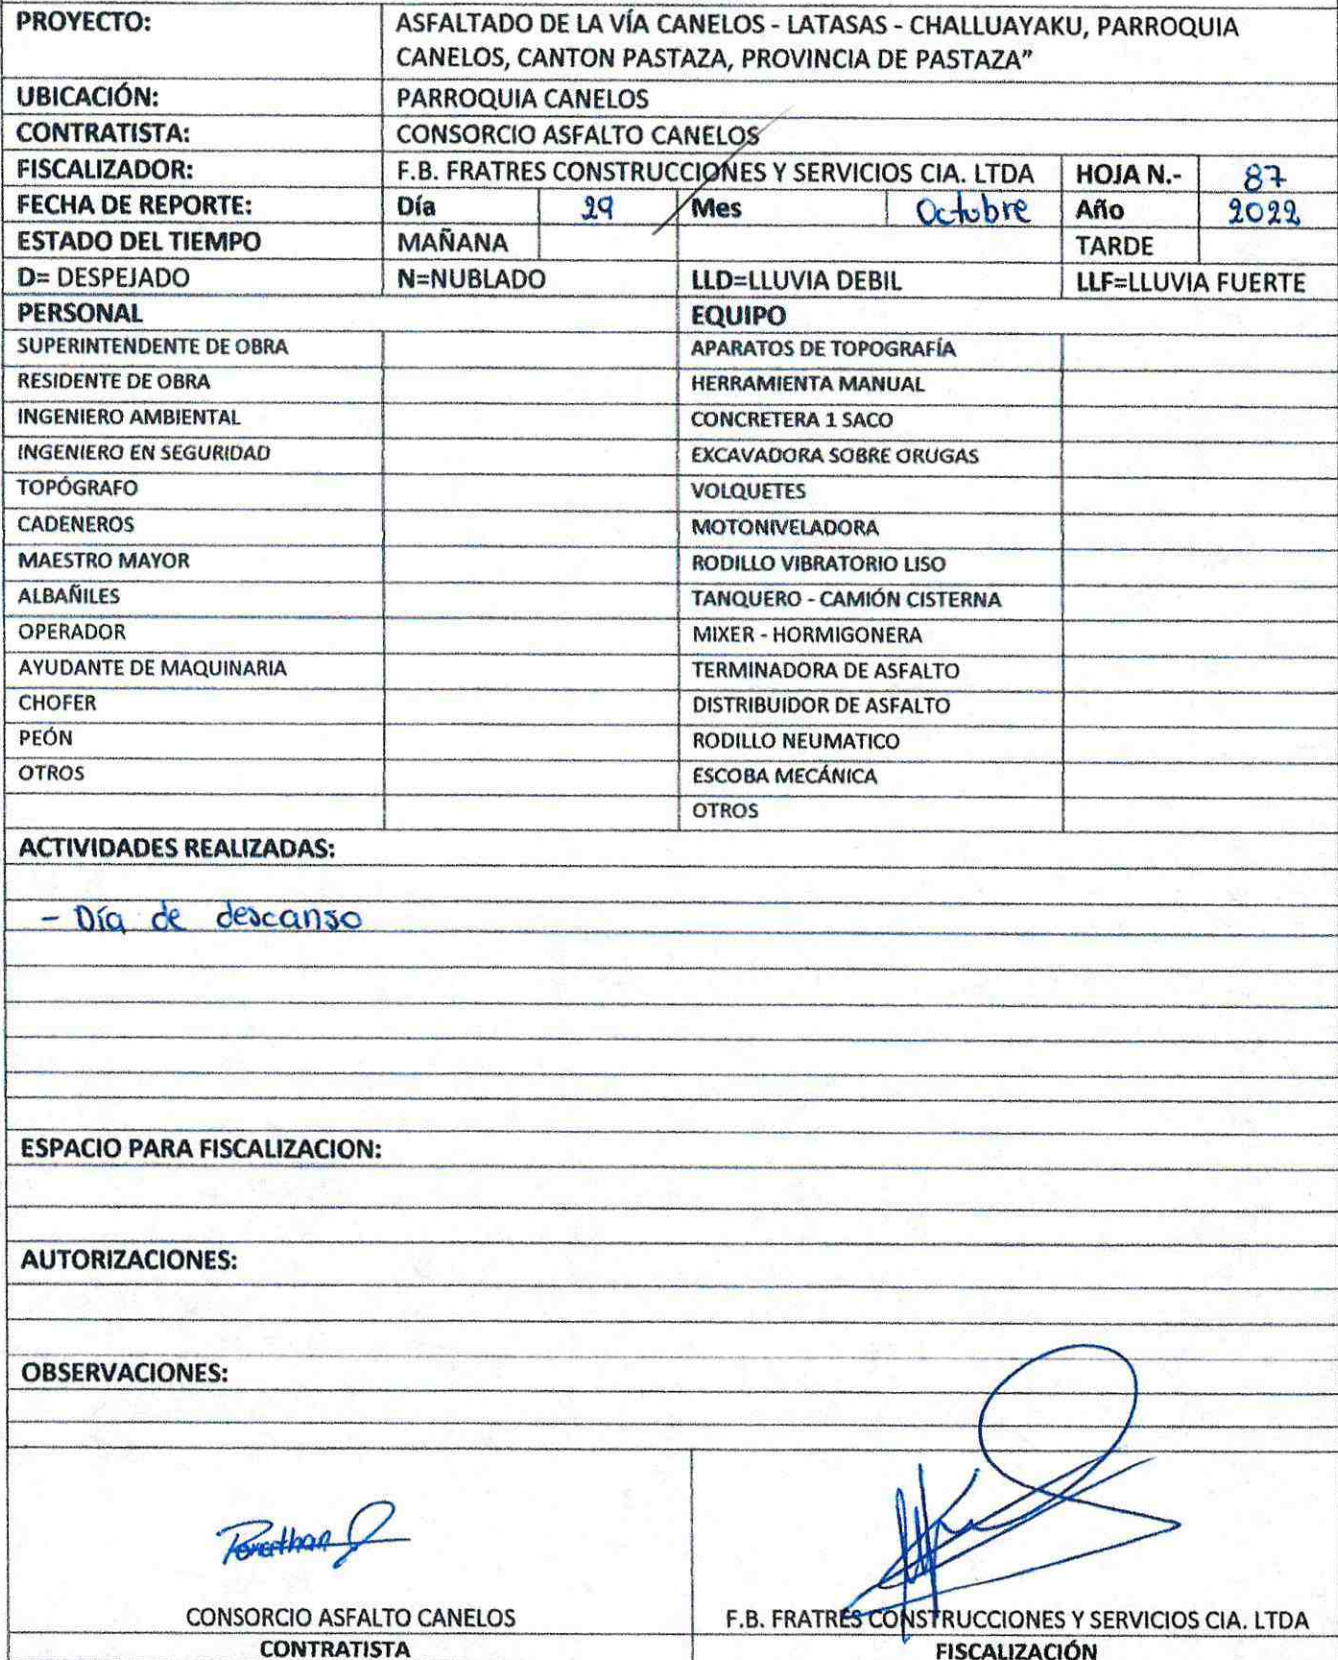 PROYECTO: ASFALTADO DE LA VÍA CANELOS - LATASAS - CHALLUAYAKU, PARROQUIA
CANELOS, CANTON PASTAZA, PROVINCIA DE PASTAZA”
UBICACIÓN: PARROQUIA CANELOS
CONTRATISTA: CONSORCIO ASFALTO CANELOS
FISCALIZADOR: F.B. FRATRES CONSTRUCCIONES Y SERVICIOS CIA. LTDA HOJA N.- 87
FECHA DE REPORTE: Día 29 Mes Octubre Año 2022
ESTADO DEL TIEMPO MAÑANA TARDE
D= DESPEJADO N=NUBLADO LLD=LLUVIA DEBIL LLF=LLUVIA FUERTE
PERSONAL EQUIPO
SUPERINTENDENTE DE OBRA APARATOS DE TOPOGRAFÍA
RESIDENTE DE OBRA HERRAMIENTA MANUAL
INGENIERO AMBIENTAL CONCRETERA 1 SACO
INGENIERO EN SEGURIDAD EXCAVADORA SOBRE ORUGAS
TOPÓGRAFO VOLQUETES
CADENEROS MOTONIVELADORA
MAESTRO MAYOR RODILLO VIBRATORIO LISO
ALBAÑILES TANQUERO - CAMIÓN CISTERNA
OPERADOR MIXER - HORMIGONERA
AYUDANTE DE MAQUINARIA TERMINADORA DE ASFALTO
CHOFER DISTRIBUIDOR DE ASFALTO
PEÓN RODILLO NEUMATICO
OTROS ESCOBA MECÁNICA
OTROS
ACTIVIDADES REALIZADAS:
- Día de descanso
ESPACIO PARA FISCALIZACION:
AUTORIZACIONES:
OBSERVACIONES:
CONSORCIO ASFALTO CANELOS F.B. FRATRES CONSTRUCCIONES Y SERVICIOS CIA. LTDA
CONTRATISTA FISCALIZACIÓN